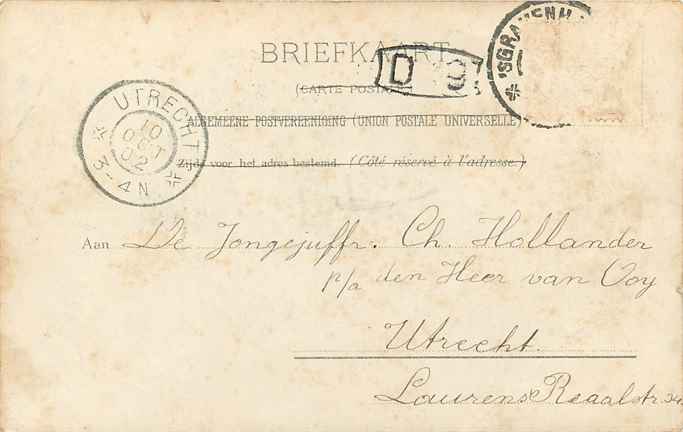 BRIEFKAART
(CARTE POSTALE)
ALGEMEENE POSTVEREENIGING (UNION POSTALE UNIVERSELLE)
Zijde voor het adres bestemd. (Côté réservé à l'adresse.)
'SGRAVENH
D
UTRECHT
10
OCT
02
3-4N
Aan De Jongejuffr. Ch. Hollander
p/a den Heer van Ooy
Utrecht.
Laurens Reaalstr. 34.